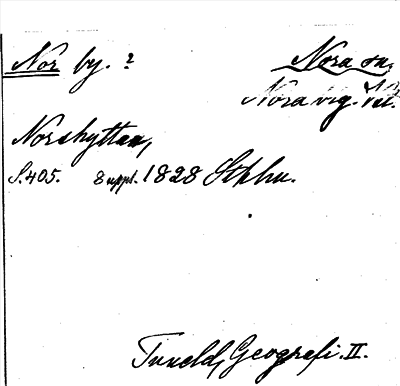 Nor by. ?
Nora sn,
Nora brg. Vstl.
Norshyttan,
S. 405. 8 uppl. 1828 Sthlm.
Tuneld, Geografi. II.